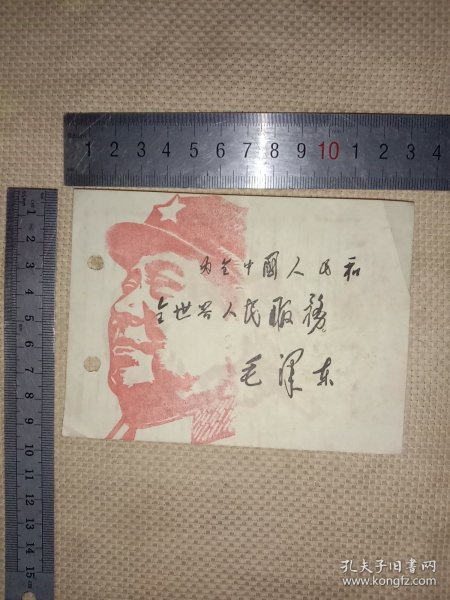 1 2 3 4 5 6 7 8 9 10 1 2 3 4
1 2 3 4 5 6 7 8 9 10 11 12 13 14 15
为全中國人民和
全世界人民服務
毛泽东
孔夫子旧书网
www.kongfz.com